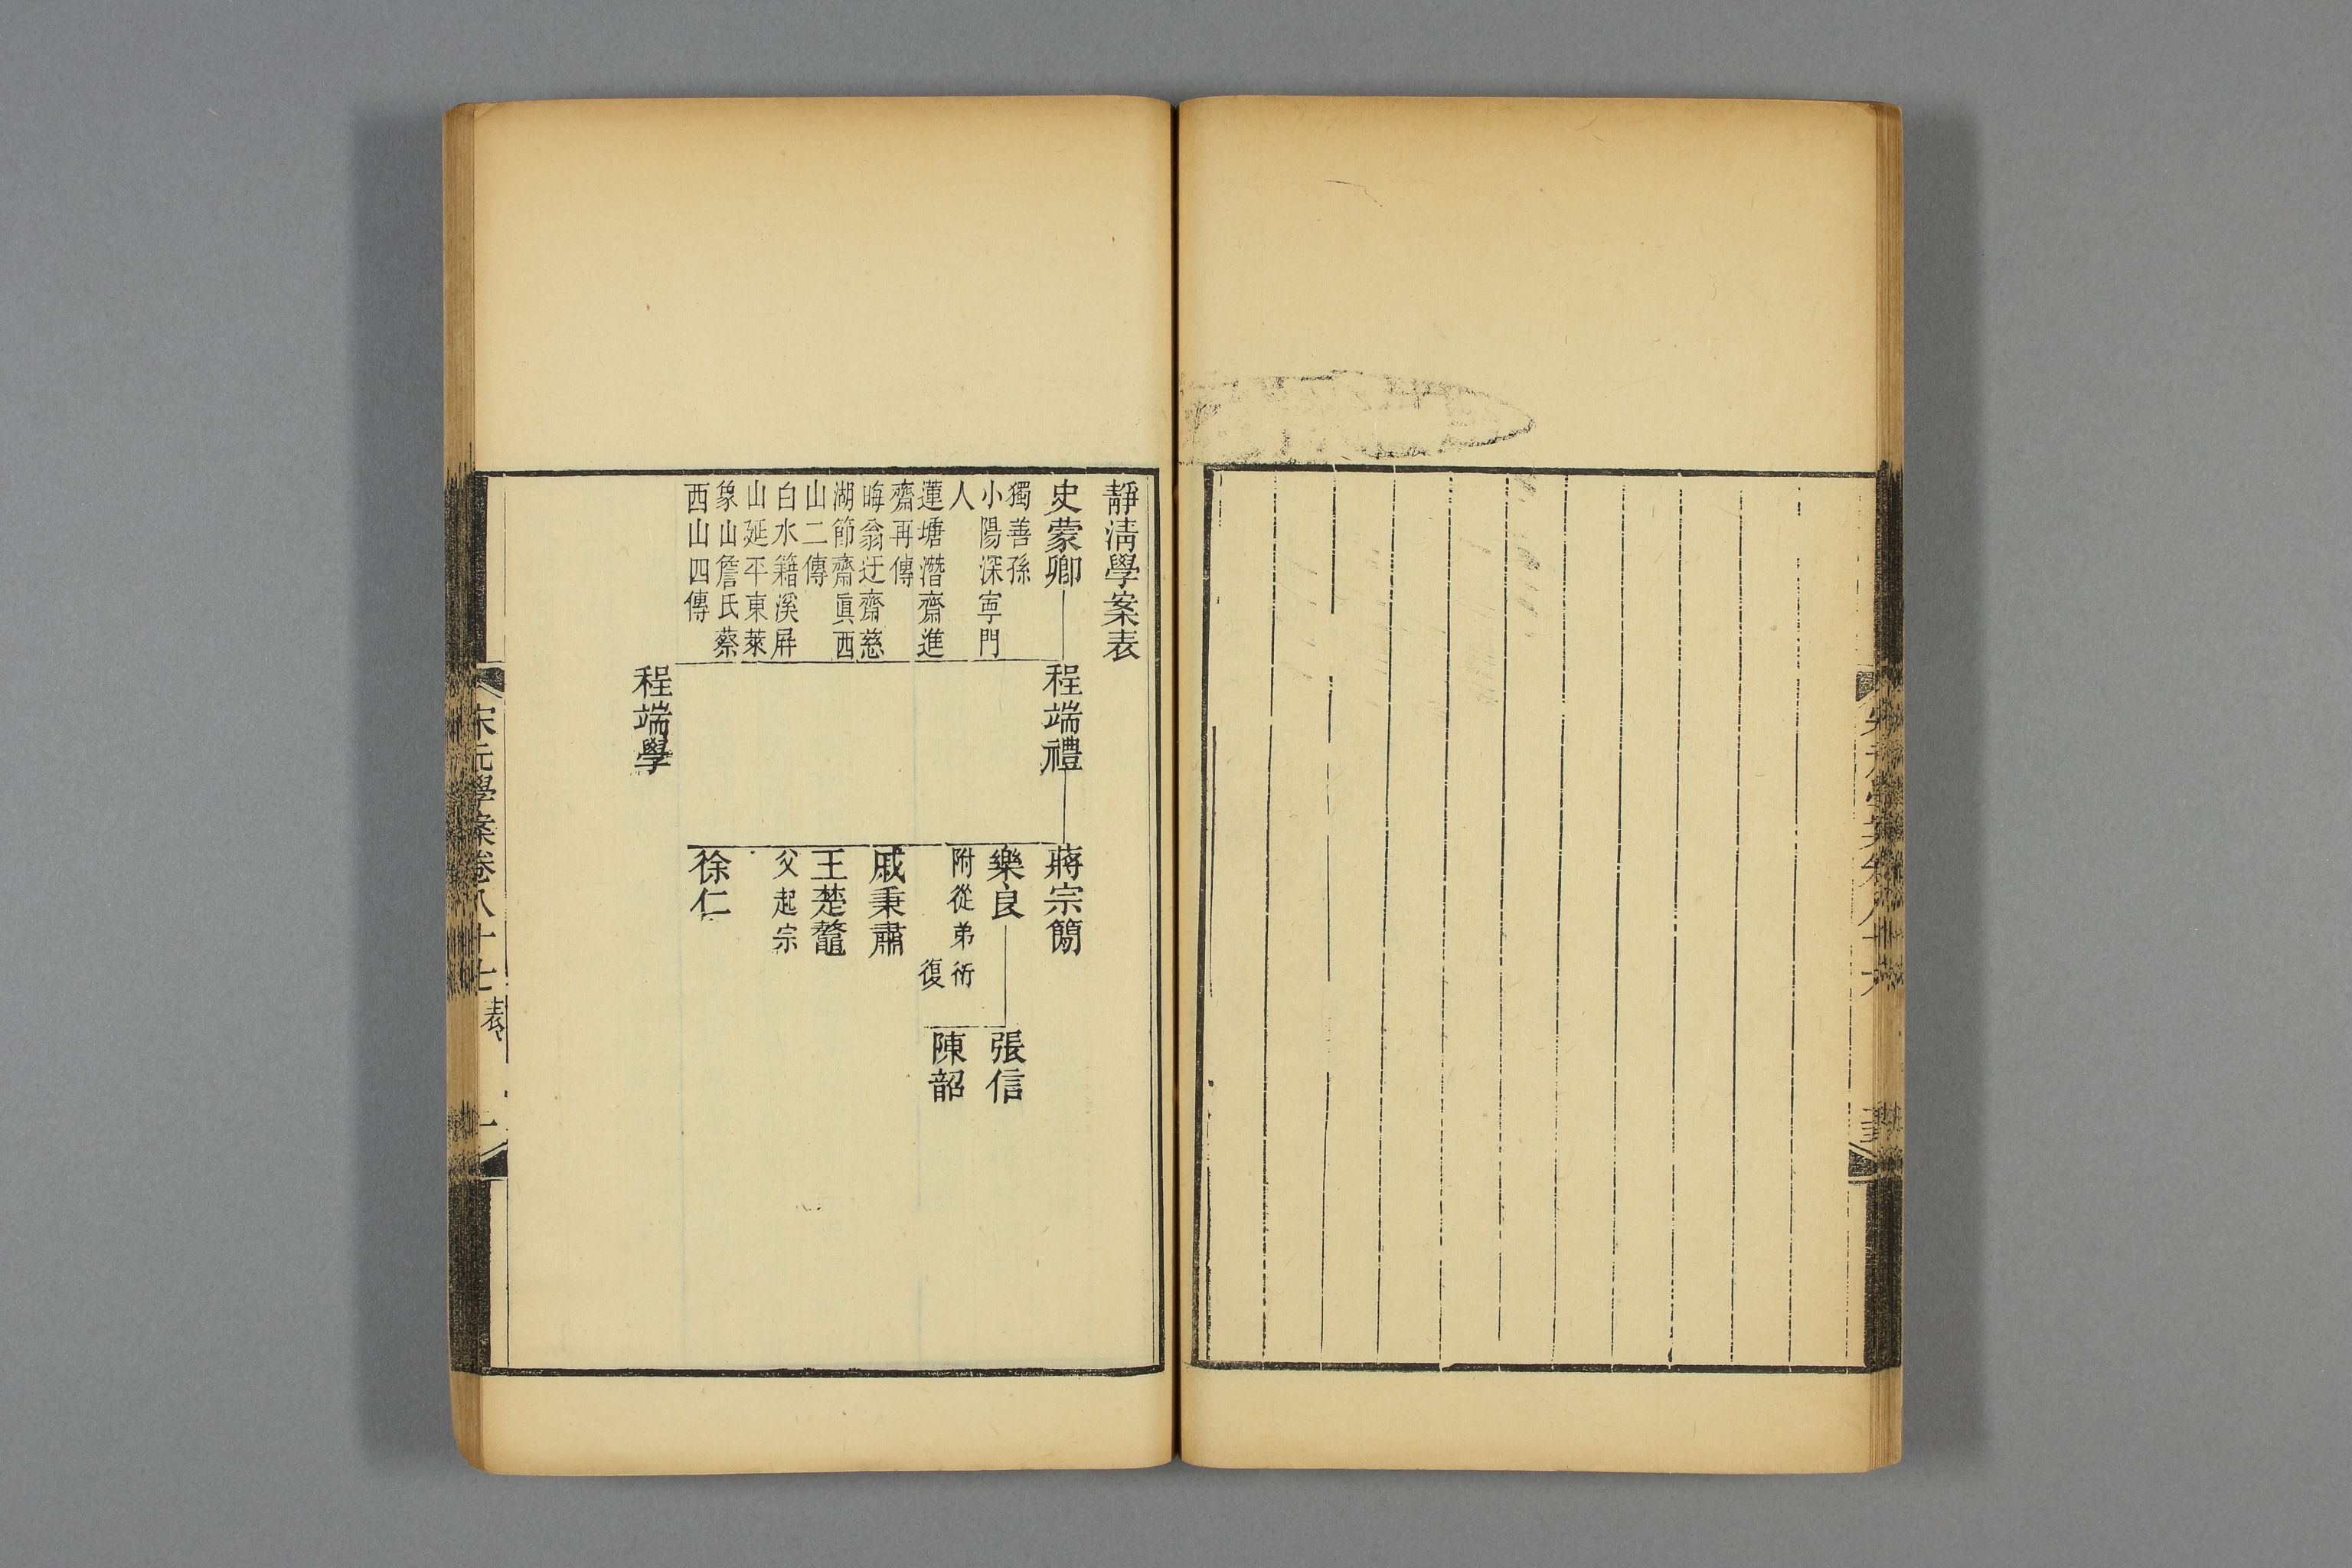 靜淸學案表
史蒙卿
獨善孫
小陽深寧門
人
蓮塘潛齋進
齋再傳
晦翁迂齋慈
湖節齋眞西
山二傳
白水籍溪屛
山延平東萊
象山詹氏蔡
西山四傳
程端禮
程端學
蔣宗簡
樂良
附從弟衍
復
戚秉肅
王楚鼇
父起宗
徐仁
張信
陳韶
宋元學案卷八十七
表
一